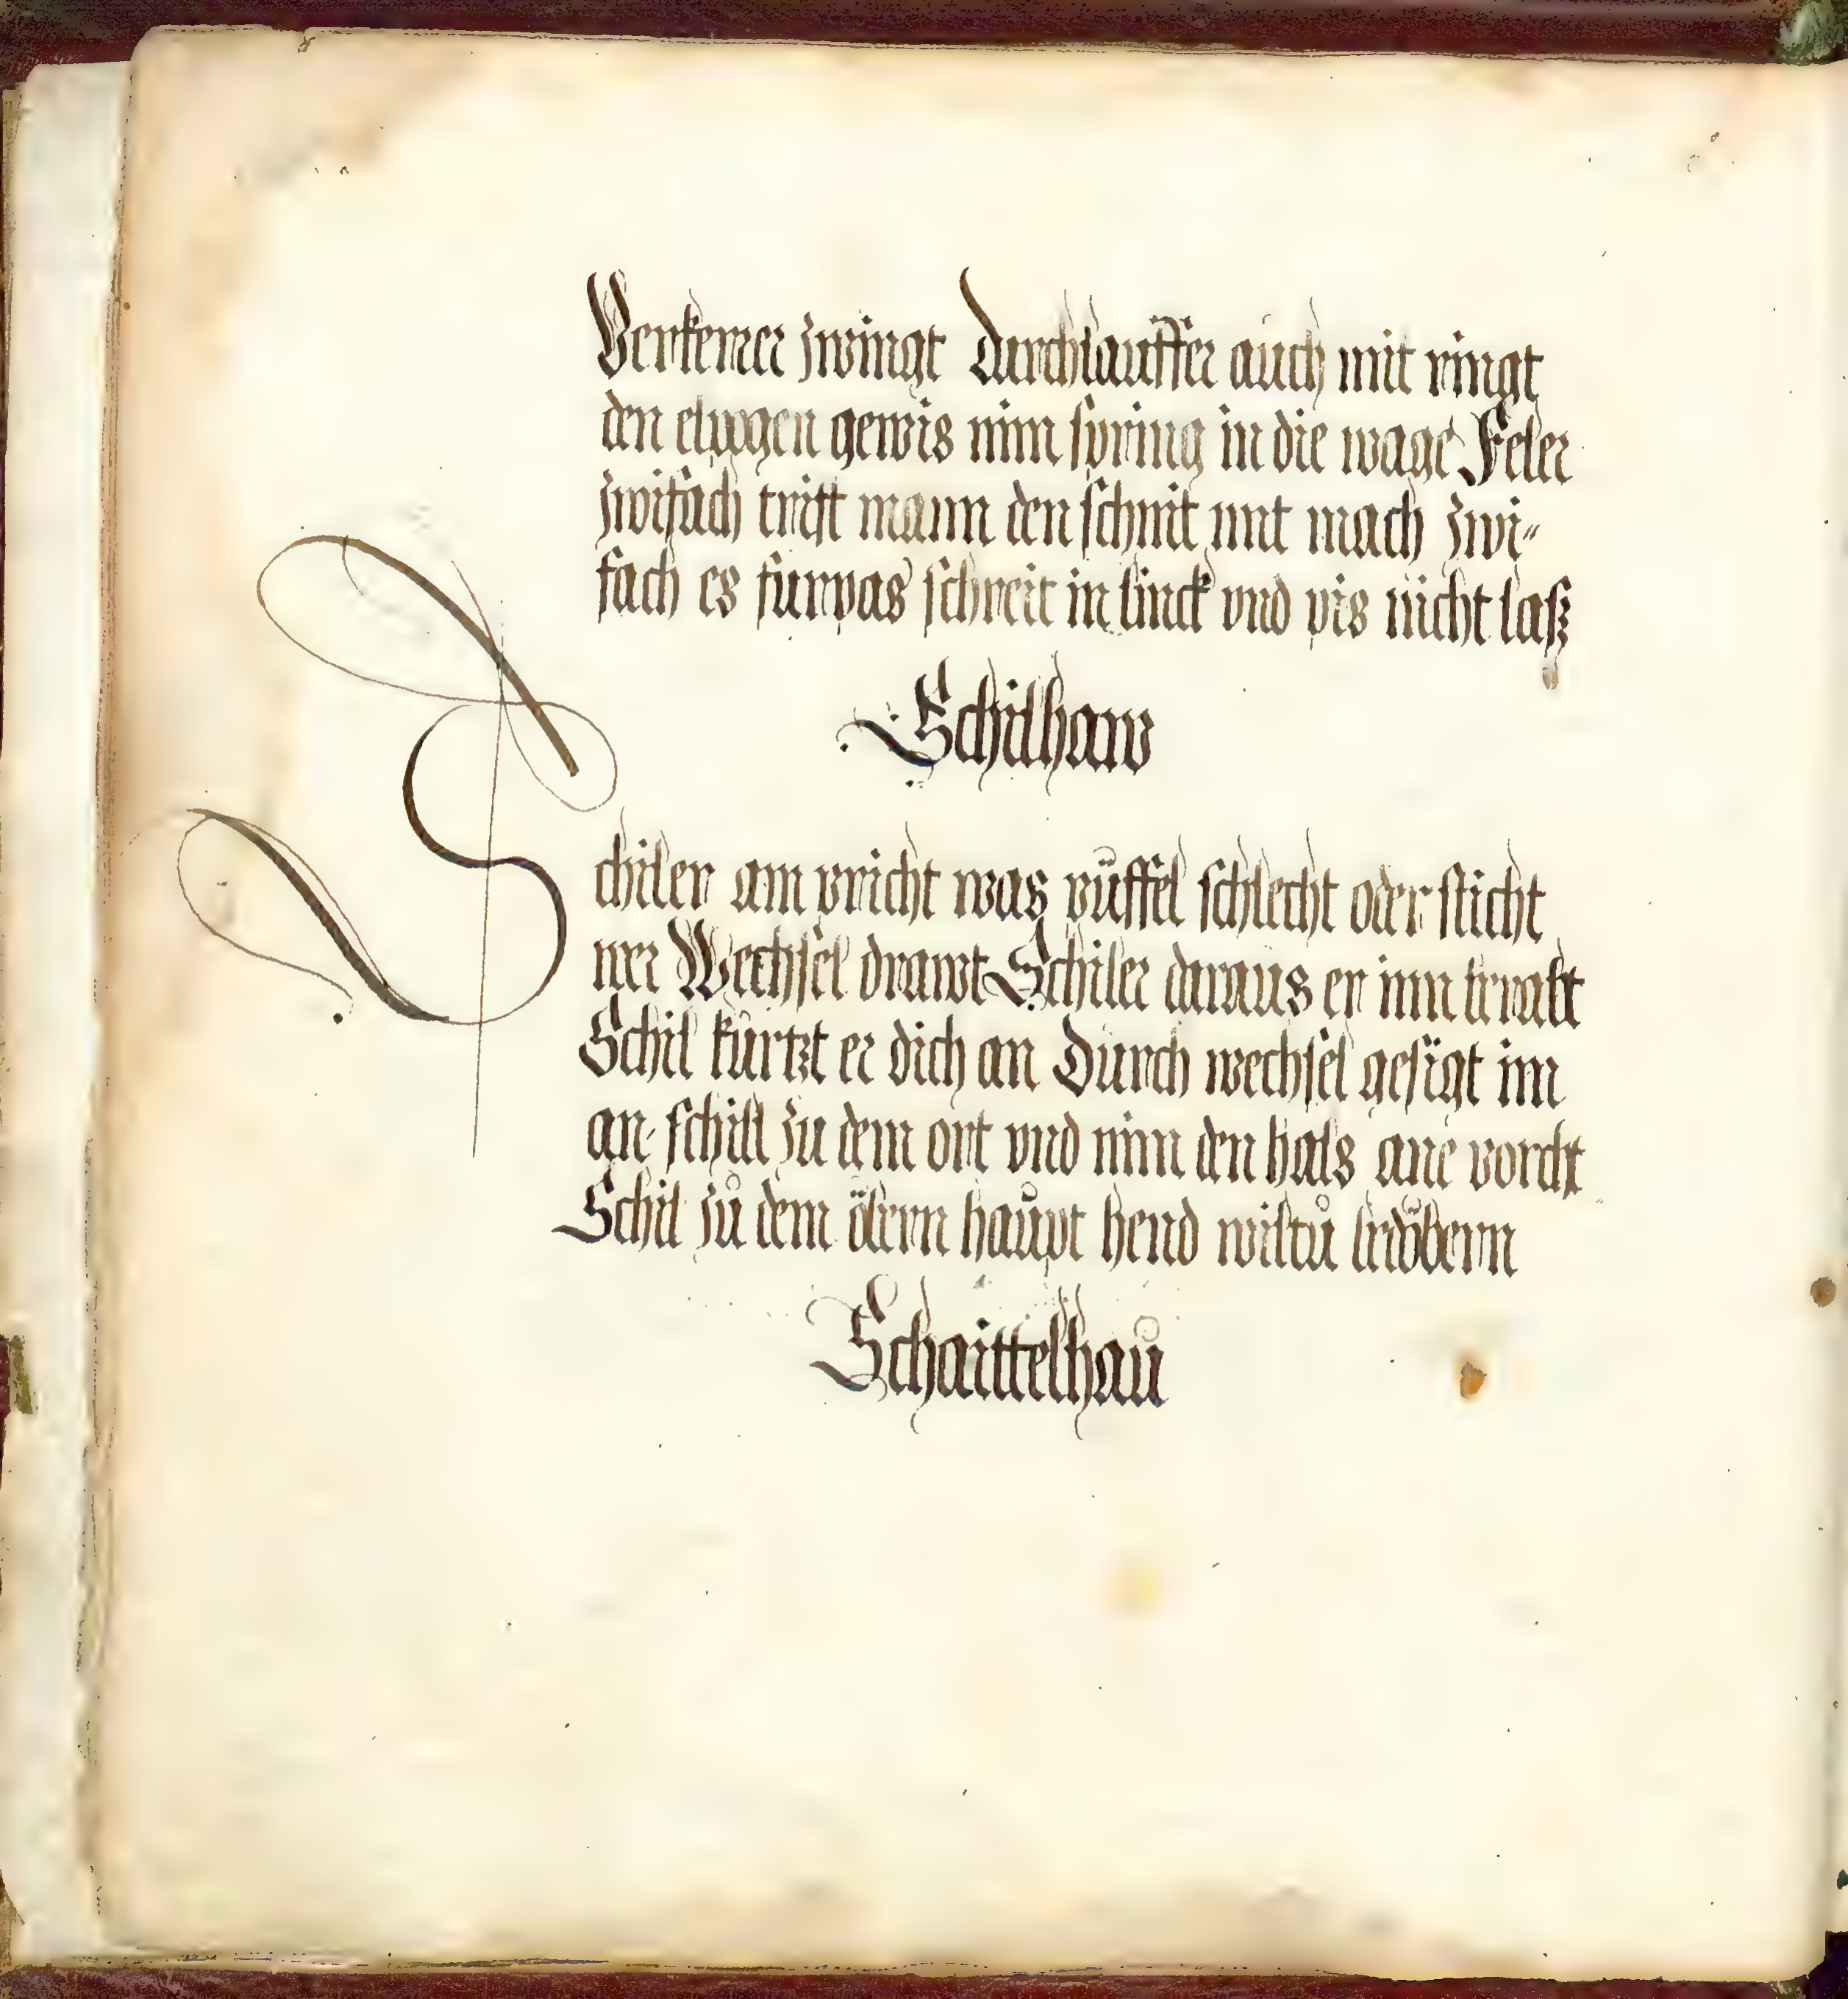 Verkerer zwingt Durchlauffer auch mit ringt
den elpogen gewis nim spring in die wage Feler
zwifach trift mann den schnit mit mach zwi-
fach es furpas schreit in linck vnd pis nicht lasz
Schilhaw
Schiler am pricht was püffel schlecht oder sticht
wer Wechsel drawt Schiler daraus er inn beraubt
Schil kürtzt er dich an Durch wechsel gesigt im
an schill zu dem ort vnd nim den hals ane vorcht
Schil zů dem öbern haůpt hend wiltů bedöbern
Schaittelhaů